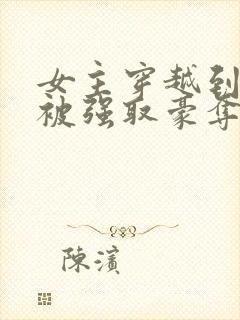 女主穿越到
被强取豪夺
陈滨